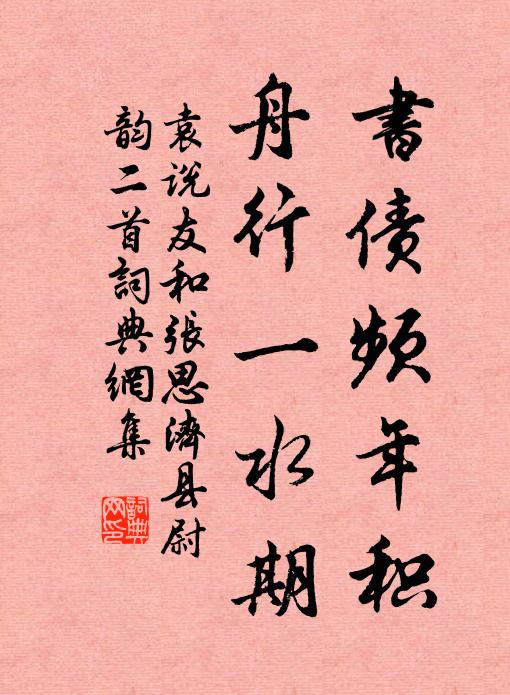 書债頻年积
舟行一水期
袁说友和張思濟县尉
韵二首詞典網集
詞典网印